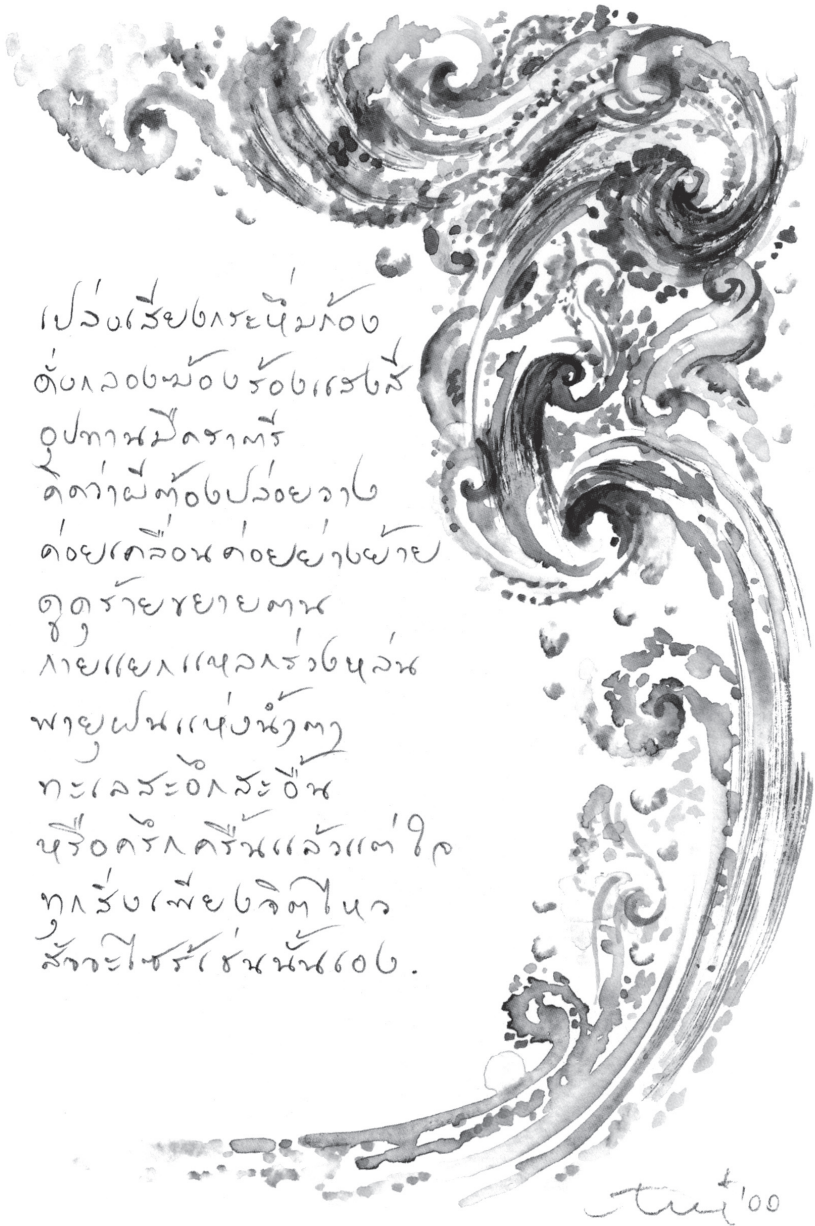 เปล่งเสียงกระหึ่มก้อง
ดั่งกลองฆ้องร้องแสงสี
อุปทานมืดราตรี
คิดว่าผีต้องปล่อยวาง
ค่อยเคลื่อนค่อยย่างย้าย
ดูดุร้ายขยายตน
กายแยกแหลกร่วงหล่น
พายุฝนแห่งน้ำตา
ทะเลสะอึกสะอื้น
หรือครึกครื้นแล้วแต่ใจ
ทุกสิ่งเพียงจิตไหว
สัจจะไซร้เช่นนั้นเอง.